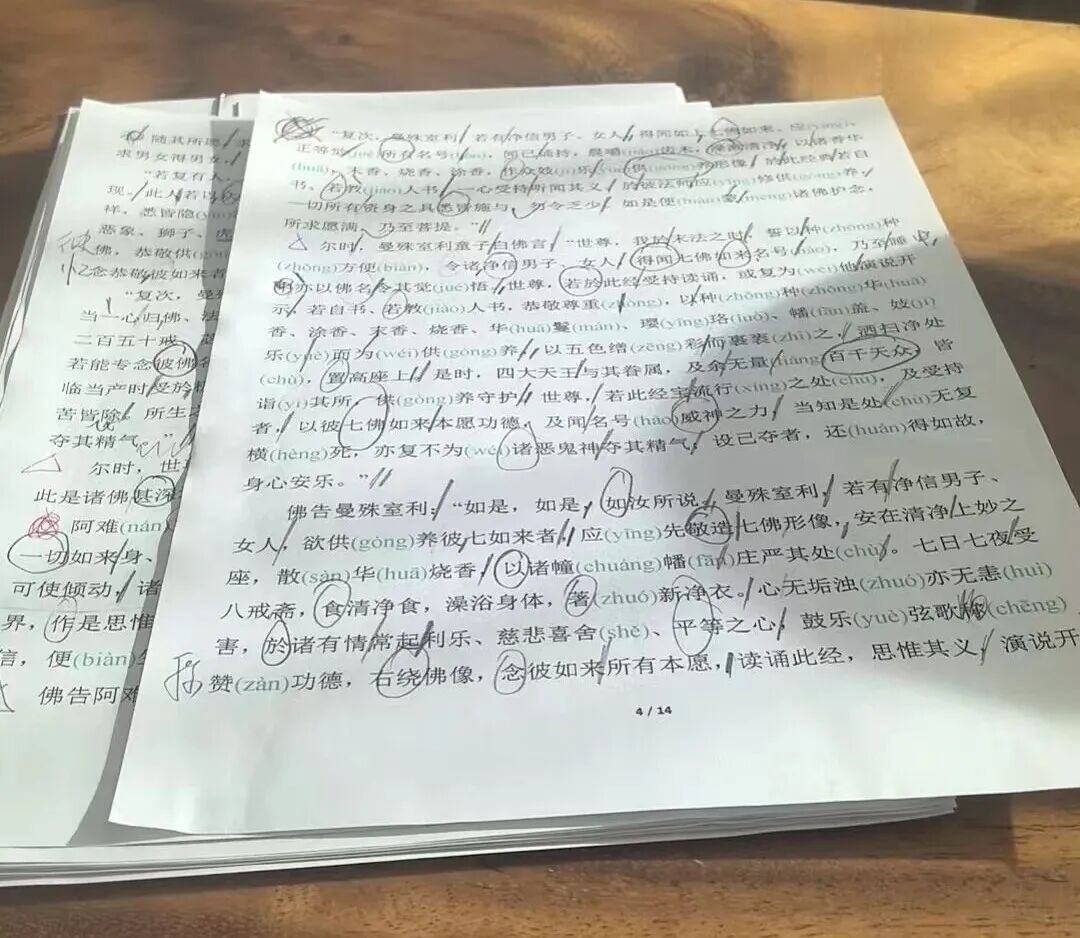 随其所愿
求男女得男女
"若复有人
现
祥，悉皆隐
恶象、狮子、虎
彼
佛，恭敬供
忆
念恭敬彼如来者
"复次，曼殊
当一心归佛、法
二百五十戒
若能专念彼佛名
临当产时受於
苦皆除。所生之
夺其精气。"
尔时，世
此是诸佛甚深
阿难(nán)
一切如来身、
可使倾动，诸
界，作是思惟
信，便(biàn)生
佛告阿难
"复次，曼殊室利，若有净信男子、女人，得闻如上七佛如来、应(yīng)
正等觉(jué)所有名号(hào)，闻已诵持，晨嚼(jiáo)齿木，澡漱清净，以诸香华
(huā)，末香、烧香、涂香，作众妓(jì)乐(yuè)供(gòng)养形像，於此经典若自
书、若教(jiāo)人书，一心受持听闻其义，於彼法师应(yīng)修供(gòng)养，
一切所有资身之具悉皆施与，勿令乏少，如是便(biàn)蒙(méng)诸佛护念，
所求愿满、乃至菩提。"
尔时，曼殊室利童子白佛言："世尊，我於末法之时，誓以种(zhǒng)种
(zhǒng)方便(biàn)，令诸净信男子、女人，得闻七佛如来名号(hào)，乃至睡
中
亦以佛名令其觉(jué)悟。世尊，若於此经受持读诵，或复为(wèi)他演说开
示，若自书、若教(jiāo)人书，恭敬尊重(zhòng)，以种(zhǒng)种(zhǒng)华(huā)
香、涂香、末香、烧香、华(huā)鬘(mán)、璎(yīng)珞(luò)、幡(fān)盖、妓(jì)
乐(yuè)而为(wéi)供(gòng)养，以五色缯(zēng)彩而裹袠(zhì)之，洒扫净处
(chù)，置高座上，是时，四大天王与其眷属，及余无量(liàng)百千天众，皆
诣(yì)其所，供(gòng)养守护。世尊，若此经宝流行(xíng)之处(chù)，及受持
者，以彼七佛如来本愿功德，及闻名号(hào)威神之力，当知是处(chù)无复
横(hèng)死，亦复不为(wéi)诸恶鬼神夺其精气，设已夺者，还(huán)得如故，
身心安乐。"
佛告曼殊室利："如是，如是，如汝所说。曼殊室利，若有净信男子、
女人，欲供(gòng)养彼七如来者，应(yīng)先敬造七佛形像，安在清净上妙之
座，散(sàn)华(huā)烧香，以诸幢(chuáng)幡(fān)庄严其处(chù)。七日七夜受
八戒斋，食清净食，澡浴身体，著(zhuó)新净衣。心无垢浊(zhuó)亦无恚(huì)
害，於诸有情常起利乐、慈悲喜舍(shě)、平等之心，鼓乐(yuè)弦歌称(chēng)
赞(zàn)功德，右绕佛像，念彼如来所有本愿，读诵此经，思惟其义，演说开
4 / 14